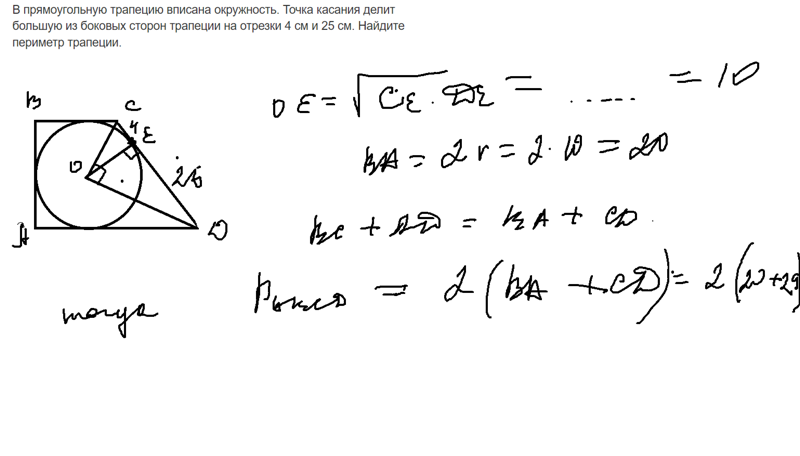 В прямоугольную трапецию вписана окружность. Точка касания делит
большую из боковых сторон трапеции на отрезки 4 см и 25 см. Найдите
периметр трапеции.
B C
4 E
O 25
A D
OE = √CE · DE = ..... = 10
BA = 2r = 2 · 10 = 20
BC + AD = BA + CD
тогда P = 2(BA + CD) = 2(20+29)